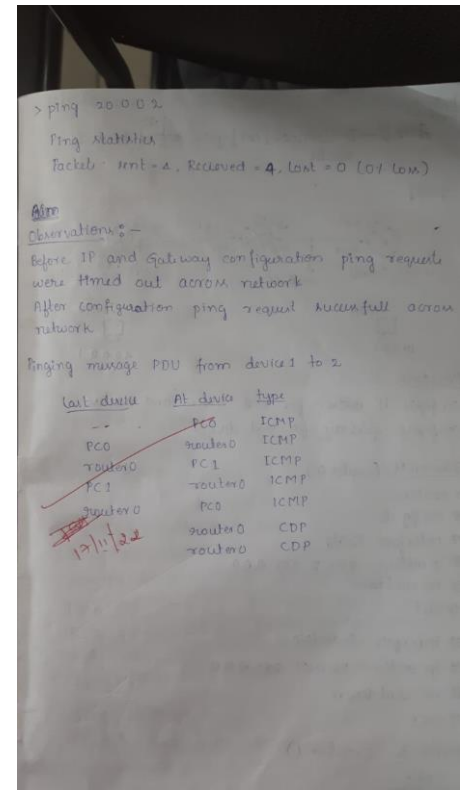 > ping 20.0.0.2
Ping statistics
Packets: sent = 4, Recieved = 4, Lost = 0 (0% Loss)
Observations :-
Before IP and Gateway configuration ping requests
were timed out across network
After configuration ping request succesfull across
network
Pinging message PDU from device 1 to 2
Last device At device type
-- PC0 ICMP
PC0 router0 ICMP
router0 PC1 ICMP
PC1 router0 ICMP
router0 PC0 ICMP
router0 CDP
router0 CDP
17/11/22